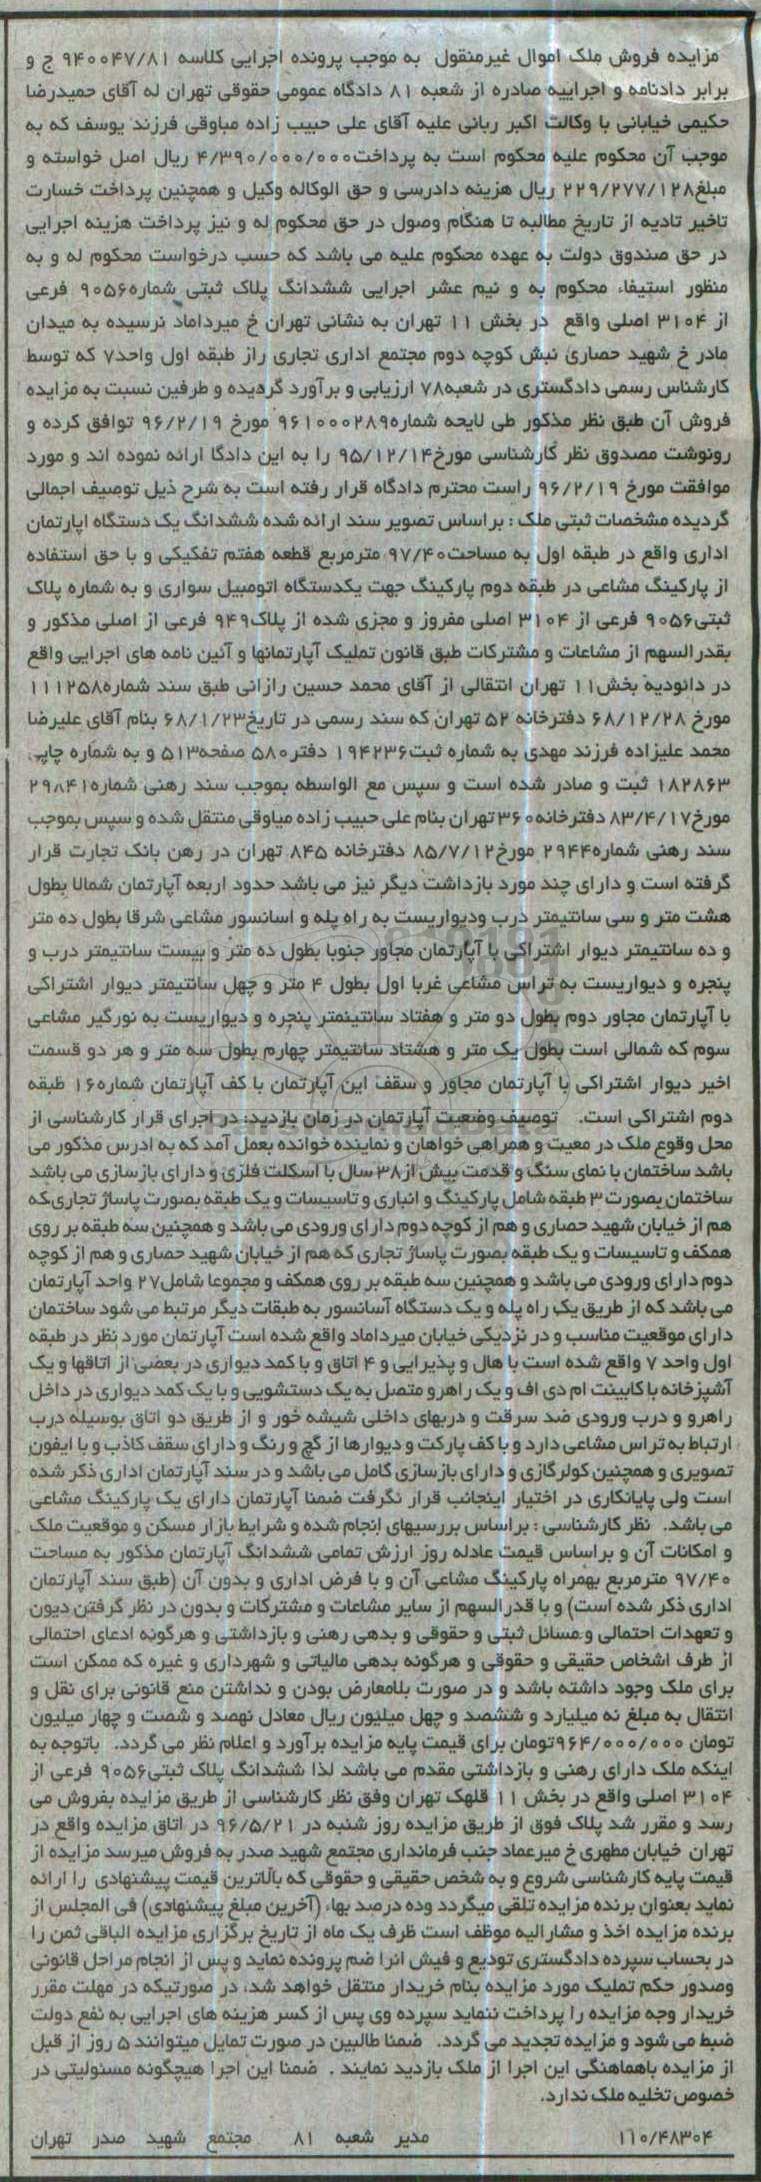 مزایده فروش ملک اموال غیرمنقول به موجب پرونده اجرایی کلاسه ۹۴۰۰۴۷/۸۱ ج و
برابر دادنامه و اجراییه صادره از شعبه ۸۱ دادگاه عمومی حقوقی تهران له آقای حمیدرضا
حکیمی خیابانی با وکالت اکبر ربانی علیه آقای علی حبیب زاده میاوقی فرزند یوسف که به
موجب آن محکوم علیه محکوم است به پرداخت۴/۳۹۰/۰۰۰/۰۰۰ ریال اصل خواسته و
مبلغ۲۲۹/۲۷۷/۱۲۸ ریال هزینه دادرسی و حق الوکاله وکیل و همچنین پرداخت خسارت
تاخیر تادیه از تاریخ مطالبه تا هنگام وصول در حق محکوم له و نیز پرداخت هزینه اجرایی
در حق صندوق دولت به عهده محکوم علیه می باشد که حسب درخواست محکوم له و به
منظور استیفاء محکوم به و نیم عشر اجرایی ششدانگ پلاک ثبتی شماره۹۰۵۶ فرعی
از ۳۱۰۴ اصلی واقع در بخش ۱۱ تهران به نشانی تهران خ میرداماد نرسیده به میدان
مادر خ شهید حصاری نبش کوچه دوم مجتمع اداری تجاری راز طبقه اول واحد۷ که توسط
کارشناس رسمی دادگستری در شعبه۷۸ ارزیابی و برآورد گردیده و طرفین نسبت به مزایده
فروش آن طبق نظر مذکور طی لایحه شماره۹۶۱۰۰۰۲۸۹ مورخ ۹۶/۲/۱۹ توافق کرده و
رونوشت مصدوق نظر کارشناسی مورخ۹۵/۱۲/۱۴ را به این دادگا ارائه نموده اند و مورد
موافقت مورخ ۹۶/۲/۱۹ راست محترم دادگاه قرار رفته است به شرح ذیل توصیف اجمالی
گردیده مشخصات ثبتی ملک : براساس تصویر سند ارائه شده ششدانگ یک دستگاه اپارتمان
اداری واقع در طبقه اول به مساحت۹۷/۴۰ مترمربع قطعه هفتم تفکیکی و با حق استفاده
از پارکینگ مشاعی در طبقه دوم پارکینگ جهت یکدستگاه اتومبیل سواری و به شماره پلاک
ثبتی۹۰۵۶ فرعی از ۳۱۰۴ اصلی مفروز و مجزی شده از پلاک۹۴۹ فرعی از اصلی مذکور و
بقدرالسهم از مشاعات و مشترکات طبق قانون تملیک آپارتمانها و آئین نامه های اجرایی واقع
در داودیه بخش۱۱ تهران انتقالی از آقای محمد حسین رازانی طبق سند شماره۱۱۱۲۵۸
مورخ ۶۸/۱۲/۲۸ دفترخانه ۵۲ تهران که سند رسمی در تاریخ۶۸/۱/۲۳ بنام آقای علیرضا
محمد علیزاده فرزند مهدی به شماره ثبت۱۹۴۲۳۶ دفتر۵۸۰ صفحه۵۱۳ و به شماره چاپی
۱۸۲۸۶۳ ثبت و صادر شده است و سپس مع الواسطه بموجب سند رهنی شماره۲۹۸۴۱
مورخ۸۳/۴/۱۷ دفترخانه۳۶۰ تهران بنام علی حبیب زاده میاوقی منتقل شده و سپس بموجب
سند رهنی شماره۲۹۴۴ مورخ۸۵/۷/۱۲ دفترخانه ۸۴۵ تهران در رهن بانک تجارت قرار
گرفته است و دارای چند مورد بازداشت دیگر نیز می باشد حدود اربعه آپارتمان شمالا بطول
هشت متر و سی سانتیمتر درب ودیواریست به راه پله و اسانسور مشاعی شرقا بطول ده متر
و ده سانتیمتر دیوار اشتراکی با آپارتمان مجاور جنوبا بطول ده متر و بیست سانتیمتر درب و
پنجره و دیواریست به تراس مشاعی غربا اول بطول ۴ متر و چهل سانتیمتر دیوار اشتراکی
با آپارتمان مجاور دوم بطول دو متر و هفتاد سانتینمتر پنجره و دیواریست به نورگیر مشاعی
سوم که شمالی است بطول یک متر و هشتاد سانتیمتر چهارم بطول سه متر و هر دو قسمت
اخیر دیوار اشتراکی با آپارتمان مجاور و سقف این آپارتمان با کف آپارتمان شماره۱۶ طبقه
دوم اشتراکی است. توصیف وضعیت آپارتمان در زمان بازدید: در اجرای قرار کارشناسی از
محل وقوع ملک در معیت و همراهی خواهان و نماینده خوانده بعمل آمد که به ادرس مذکور می
باشد ساختمان با نمای سنگ و قدمت بیش از۳۸ سال با اسکلت فلزی و دارای بازسازی می باشد
ساختمان بصورت ۳ طبقه شامل پارکینگ و انباری و تاسیسات و یک طبقه بصورت پاساژ تجاری که
هم از خیابان شهید حصاری و هم از کوچه دوم دارای ورودی می باشد و همچنین سه طبقه بر روی
همکف و تاسیسات و یک طبقه بصورت پاساژ تجاری که هم از خیابان شهید حصاری و هم از کوچه
دوم دارای ورودی می باشد و همچنین سه طبقه بر روی همکف و مجموعا شامل۲۷ واحد آپارتمان
می باشد که از طریق یک راه پله و یک دستگاه آسانسور به طبقات دیگر مرتبط می شود ساختمان
دارای موقعیت مناسب و در نزدیکی خیابان میرداماد واقع شده است آپارتمان مورد نظر در طبقه
اول واحد ۷ واقع شده است با هال و پذیرایی و ۴ اتاق و با کمد دیواری در بعضی از اتاقها و یک
آشپزخانه با کابینت ام دی اف و یک راهرو متصل به یک دستشویی و با یک کمد دیواری در داخل
راهرو و درب ورودی ضد سرقت و دربهای داخلی شیشه خور و از طریق دو اتاق بوسیله درب
ارتباط به تراس مشاعی دارد و با کف پارکت و دیوارها از گچ و رنگ و دارای سقف کاذب و با ایفون
تصویری و همچنین کولرگازی و دارای بازسازی کامل می باشد و در سند آپارتمان اداری ذکر شده
است ولی پایانکاری در اختیار اینجانب قرار نگرفت ضمنا آپارتمان دارای یک پارکینگ مشاعی
می باشد. نظر کارشناسی : براساس بررسیهای انجام شده و شرایط بازار مسکن و موقعیت ملک
و امکانات آن و براساس قیمت عادله روز ارزش تمامی ششدانگ آپارتمان مذکور به مساحت
۹۷/۴۰ مترمربع بهمراه پارکینگ مشاعی آن و با فرض اداری و بدون آن (طبق سند آپارتمان
اداری ذکر شده است) و با قدرالسهم از سایر مشاعات و مشترکات و بدون در نظر گرفتن دیون
و تعهدات احتمالی و مسائل ثبتی و حقوقی و بدهی رهنی و بازداشتی و هرگونه ادعای احتمالی
از طرف اشخاص حقیقی و حقوقی و هرگونه بدهی مالیاتی و شهرداری و غیره که ممکن است
برای ملک وجود داشته باشد و در صورت بلامعارض بودن و نداشتن منع قانونی برای نقل و
انتقال به مبلغ نه میلیارد و ششصد و چهل میلیون ریال معادل نهصد و شصت و چهار میلیون
تومان ۹۶۴/۰۰۰/۰۰۰تومان برای قیمت پایه مزایده برآورد و اعلام نظر می گردد. باتوجه به
اینکه ملک دارای رهنی و بازداشتی مقدم می باشد لذا ششدانگ پلاک ثبتی۹۰۵۶ فرعی از
۳۱۰۴ اصلی واقع در بخش ۱۱ قلهک تهران وفق نظر کارشناسی از طریق مزایده بفروش می
رسد و مقرر شد پلاک فوق از طریق مزایده روز شنبه در ۹۶/۵/۲۱ در اتاق مزایده واقع در
تهران خیابان مطهری خ میرعماد جنب فرمانداری مجتمع شهید صدر به فروش میرسد مزایده از
قیمت پایه کارشناسی شروع و به شخص حقیقی و حقوقی که بالاترین قیمت پیشنهادی را ارائه
نماید بعنوان برنده مزایده تلقی میگردد وده درصد بهاء (آخرین مبلغ پیشنهادی) فی المجلس از
برنده مزایده اخذ و مشارالیه موظف است ظرف یک ماه از تاریخ برگزاری مزایده الباقی ثمن را
در بحساب سپرده دادگستری تودیع و فیش انرا ضم پرونده نماید و پس از انجام مراحل قانونی
وصدور حکم تملیک مورد مزایده بنام خریدار منتقل خواهد شد، در صورتیکه در مهلت مقرر
خریدار وجه مزایده را پرداخت ننماید سپرده وی پس از کسر هزینه های اجرایی به نفع دولت
ضبط می شود و مزایده تجدید می گردد. ضمنا طالبین در صورت تمایل میتوانند ۵ روز از قبل
از مزایده باهماهنگی این اجرا از ملک بازدید نمایند . ضمنا این اجرا هیچگونه مسئولیتی در
خصوص تخلیه ملک ندارد.
۱۱۰/۴۸۳۰۴ مدیر شعبه ۸۱ مجتمع شهید صدر تهران